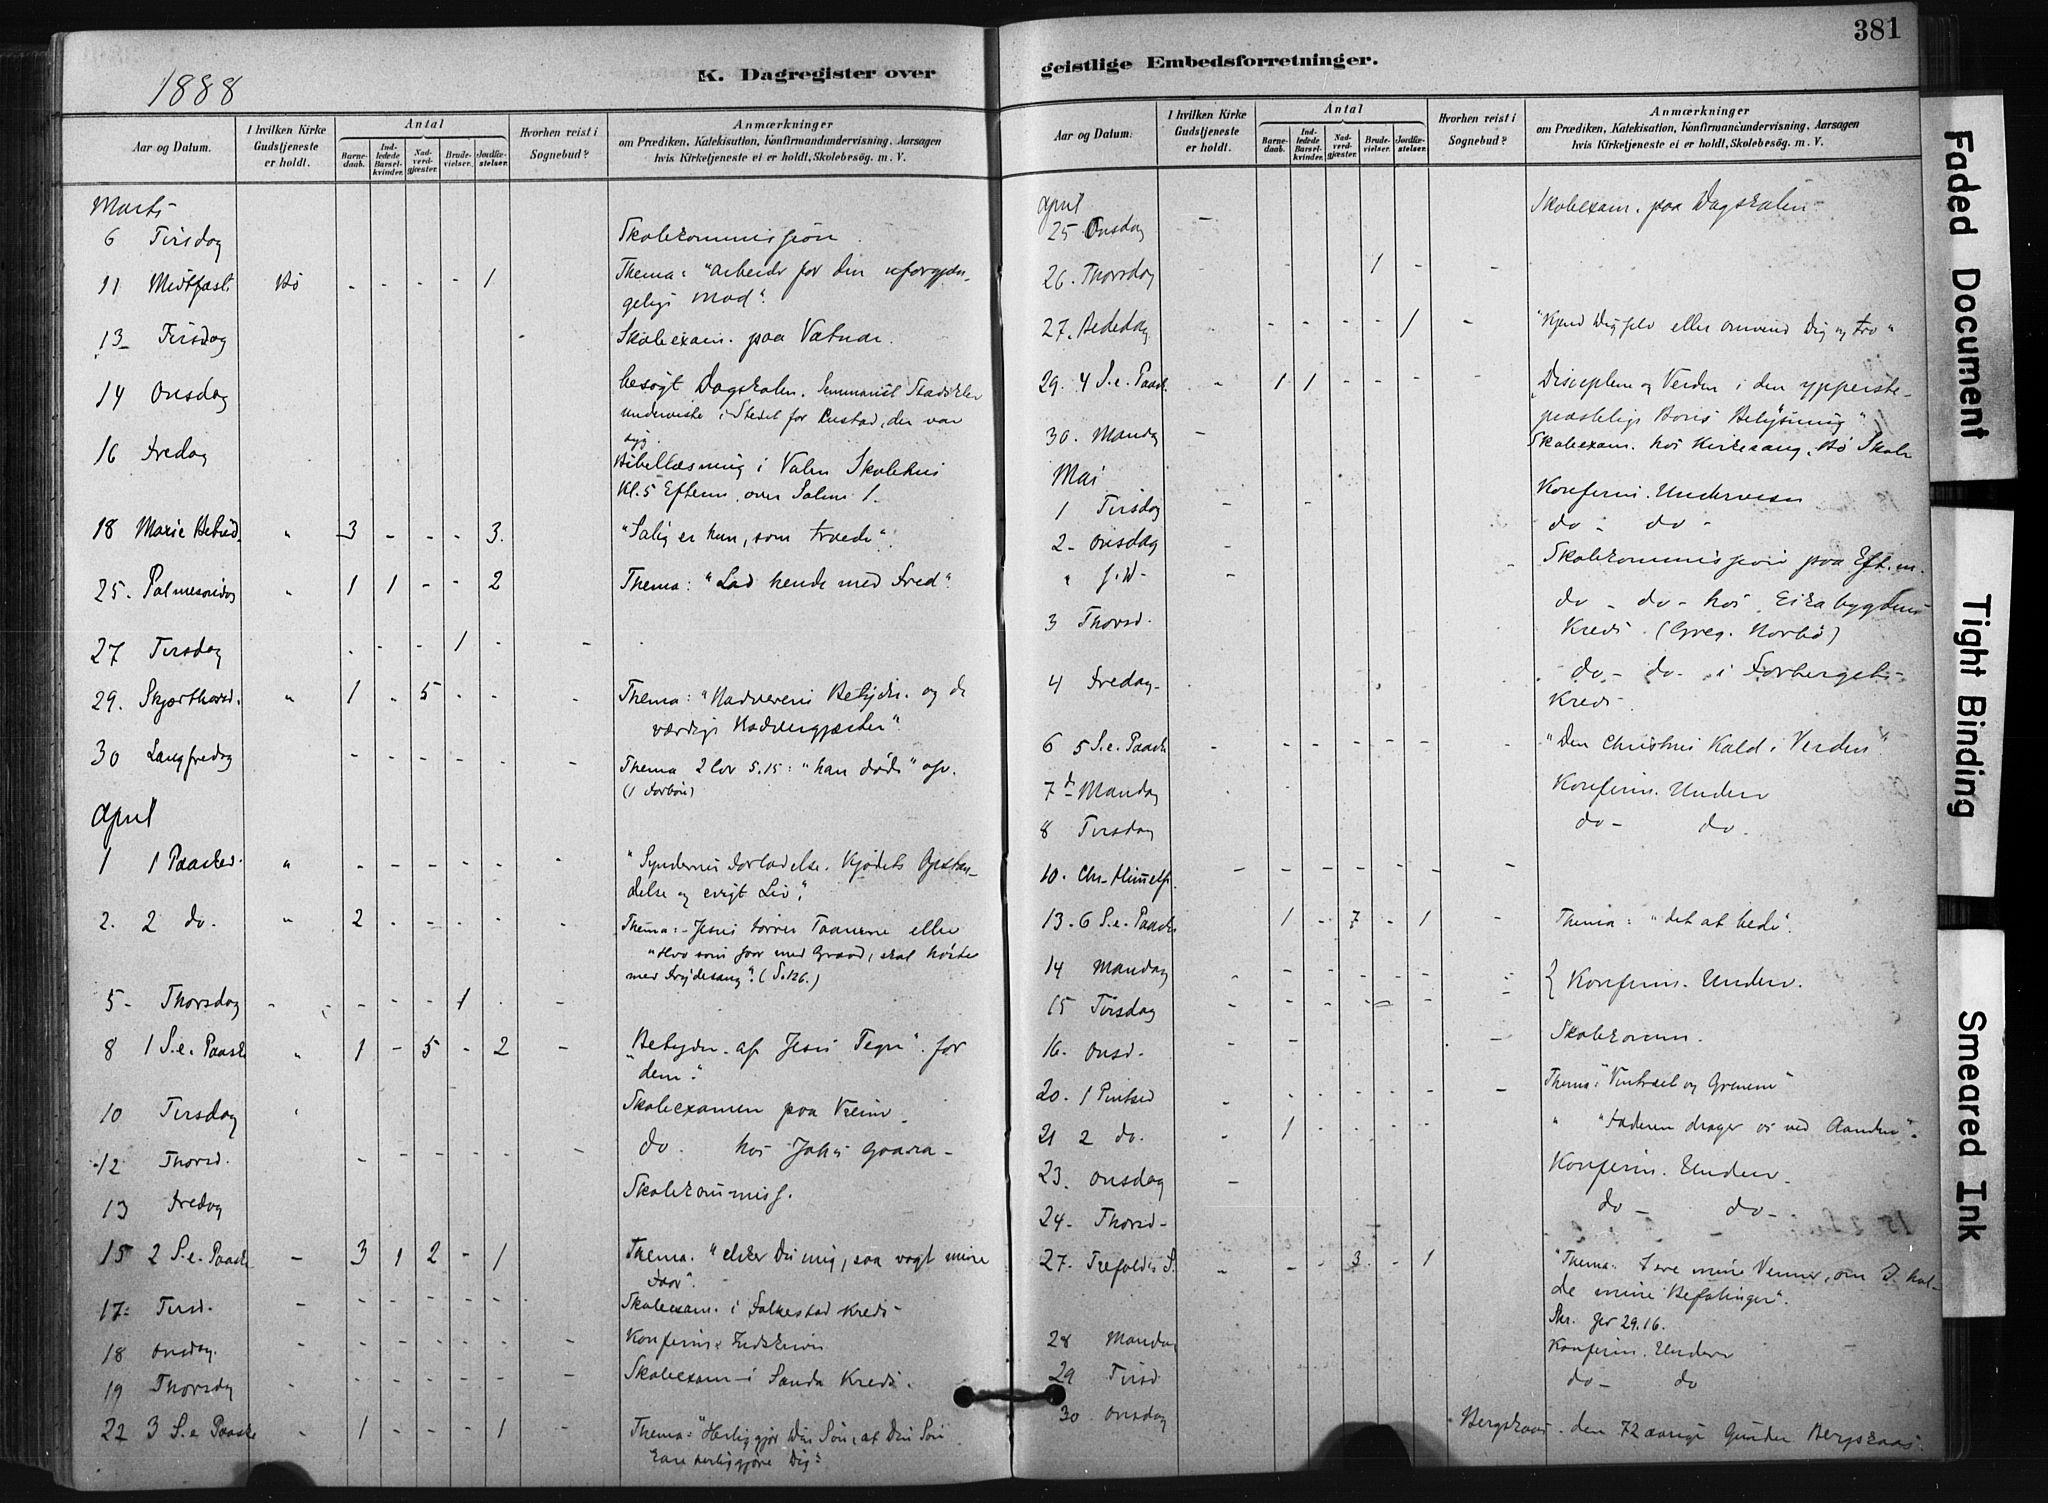 381
1888
K. Dagregister over
geistlige Embedsforretninger.
Aar og Datum.
I hvilken Kirke Gudstjeneste er holdt.
Antal
Barnedaab.
Indledede Barselkvinder.
Nadverdgjæster.
Brudevielser.
Jordfæstelser.
Hvorhen reist i Sognebud?
Anmærkninger
om Prædiken, Katekisation, Konfirmandundervisning, Aarsagen
hvis Kirketjeneste ei er holdt, Skolebesøg. m. V.
Marts
6 Tirsdag Skolekommission
11 Midtfast. Bø - - - - 1 Thema: "Arbeide for den uforgjæn-
gelige Mad".
13 Tirsdag Skoleexam. paa Vatnar.
14 Onsdag besøgt Dagskolen. Seminarist
underviste i Stedet for der var
syg.
16 Fredag Bibellæsning i Valen Skolehus
Kl. 5 Efterm. over Salme 1.
18 Mariæ Bebud. " 3 - - - 3. "Salig er hun, som troede".
25. Palmesøndag " 1 1 - - 2 Thema: "Lad hende med Fred"
27 Tirsdag - - - 1 - -
29. Skjærthorsd. " 1 - 5 - - - Thema: "Nadverens Betydn. og de
værdige Nadvergjæster".
30 Langfredag - - - - - - Thema 2 Cor 5.15: "han døde" osv.
April
1 1 Paasked. " - - - - - - "Syndernes Forladelse. Kjødets Opstan-
delse og evigt Liv".
2. 2 do. " 2 - - - - - Thema: Jesus tørrer Taarerne eller
"Hvo som saar med Graad, skal høste
med Frydesang". (S. 126.)
5 - Thorsdag - - - - 1 - -
8 1 S. e. Paaske " 1 - 5 - 2 - Betydn. af Jesu Tegn". for
"dem".
10 Tirsdag Skoleexamen paa Vreim
12 Thorsd. - - - - - - do. hos
13 Fredag Skolekommiss.
15 2 S. e. Paaske - 3 1 2 - 1 Thema. "elsker Du mig, saa vogt mine
Faar".
17 Tirsd. - - - - - - Skoleexam. i Folkestad Kreds
18 Onsdag. - - - - - - - Konfirm. Indskriv.
19 Thorsdag - - - - - - - Skoleexam - i Sanda Kreds.
22 3 S. e. Paaske - 1 - - - 1 - Thema: "Herliggjør Din Søn, at Din Søn
herliggjøre Dig"
Aar og Datum.
I hvilken Kirke Gudstjeneste er holdt.
Antal
Barnedaab.
Indledede Barselkvinder.
Nadverdgjæster.
Brudevielser.
Jordfæstelser.
Hvorhen reist i Sognebud?
Anmærkninger
om Prædiken, Katekisation, Konfirmandundervisning, Aarsagen
hvis Kirketjeneste ei er holdt, Skolebesøg. m. V.
April
25. Onsdag - Skoleexam. paa Dagskolen -
26. Thorsdag - - - 1 - -
27. Bededag - - - - 1 - "Kjend Dig selv eller omvend Dig og tro"
29. 4 S. e. Paask. - 1 1 - - - - "Disciplene og Verden i den ypperste-
præstelige Bøns Belysning".
30. Mandag - Skoleexam. hos Kirkesang. Bø Skole
Mai
1 Tirsdag - Konfirm. Underviisn
2 - Onsdag - do - do -
" - Skolekommission paa Eft. m.
3 Thorsd. do - do - hos Eikabygdens
Kreds. (Greg. Norbø)
4 Fredag - do - do - i Forbergets
Kreds.
6 5 S. e. Paask - - - - - - - "Den Christnes Kald i Verden"
7 Mandag Konfirm. Underv
8 Tirsdag do - do.
10. Chr. Himmelf. - - - - - - -
13. 6 S. e. Paaske 1 - 7 - 1 - Thema: "det at bede".
14 Mandag } Konfirm. Underv.
15 Tirsdag
16. Onsd. Skolekomm.
20. 1 Pintsed - - - - - - - Thema: "Vintræet og Grenene"
21 2 do. - 1 - - - - " "Faderen drager os ved Aanden".
23. Onsdag - Konfirm. Underv
24. Thorsd - do - do -
27. Trefoldigh. S. - - - 3 - 1 "Thema: I ere mine Venner, om I hol-
de mine Befalinger".
29.16.
28 Mandag Konfirm. Underv
29 Tirsd do - do
30 Onsdag Bergskaas. den 72 aarige Gunder Bergskaas.
Faded Document
Tight Binding
Smeared Ink